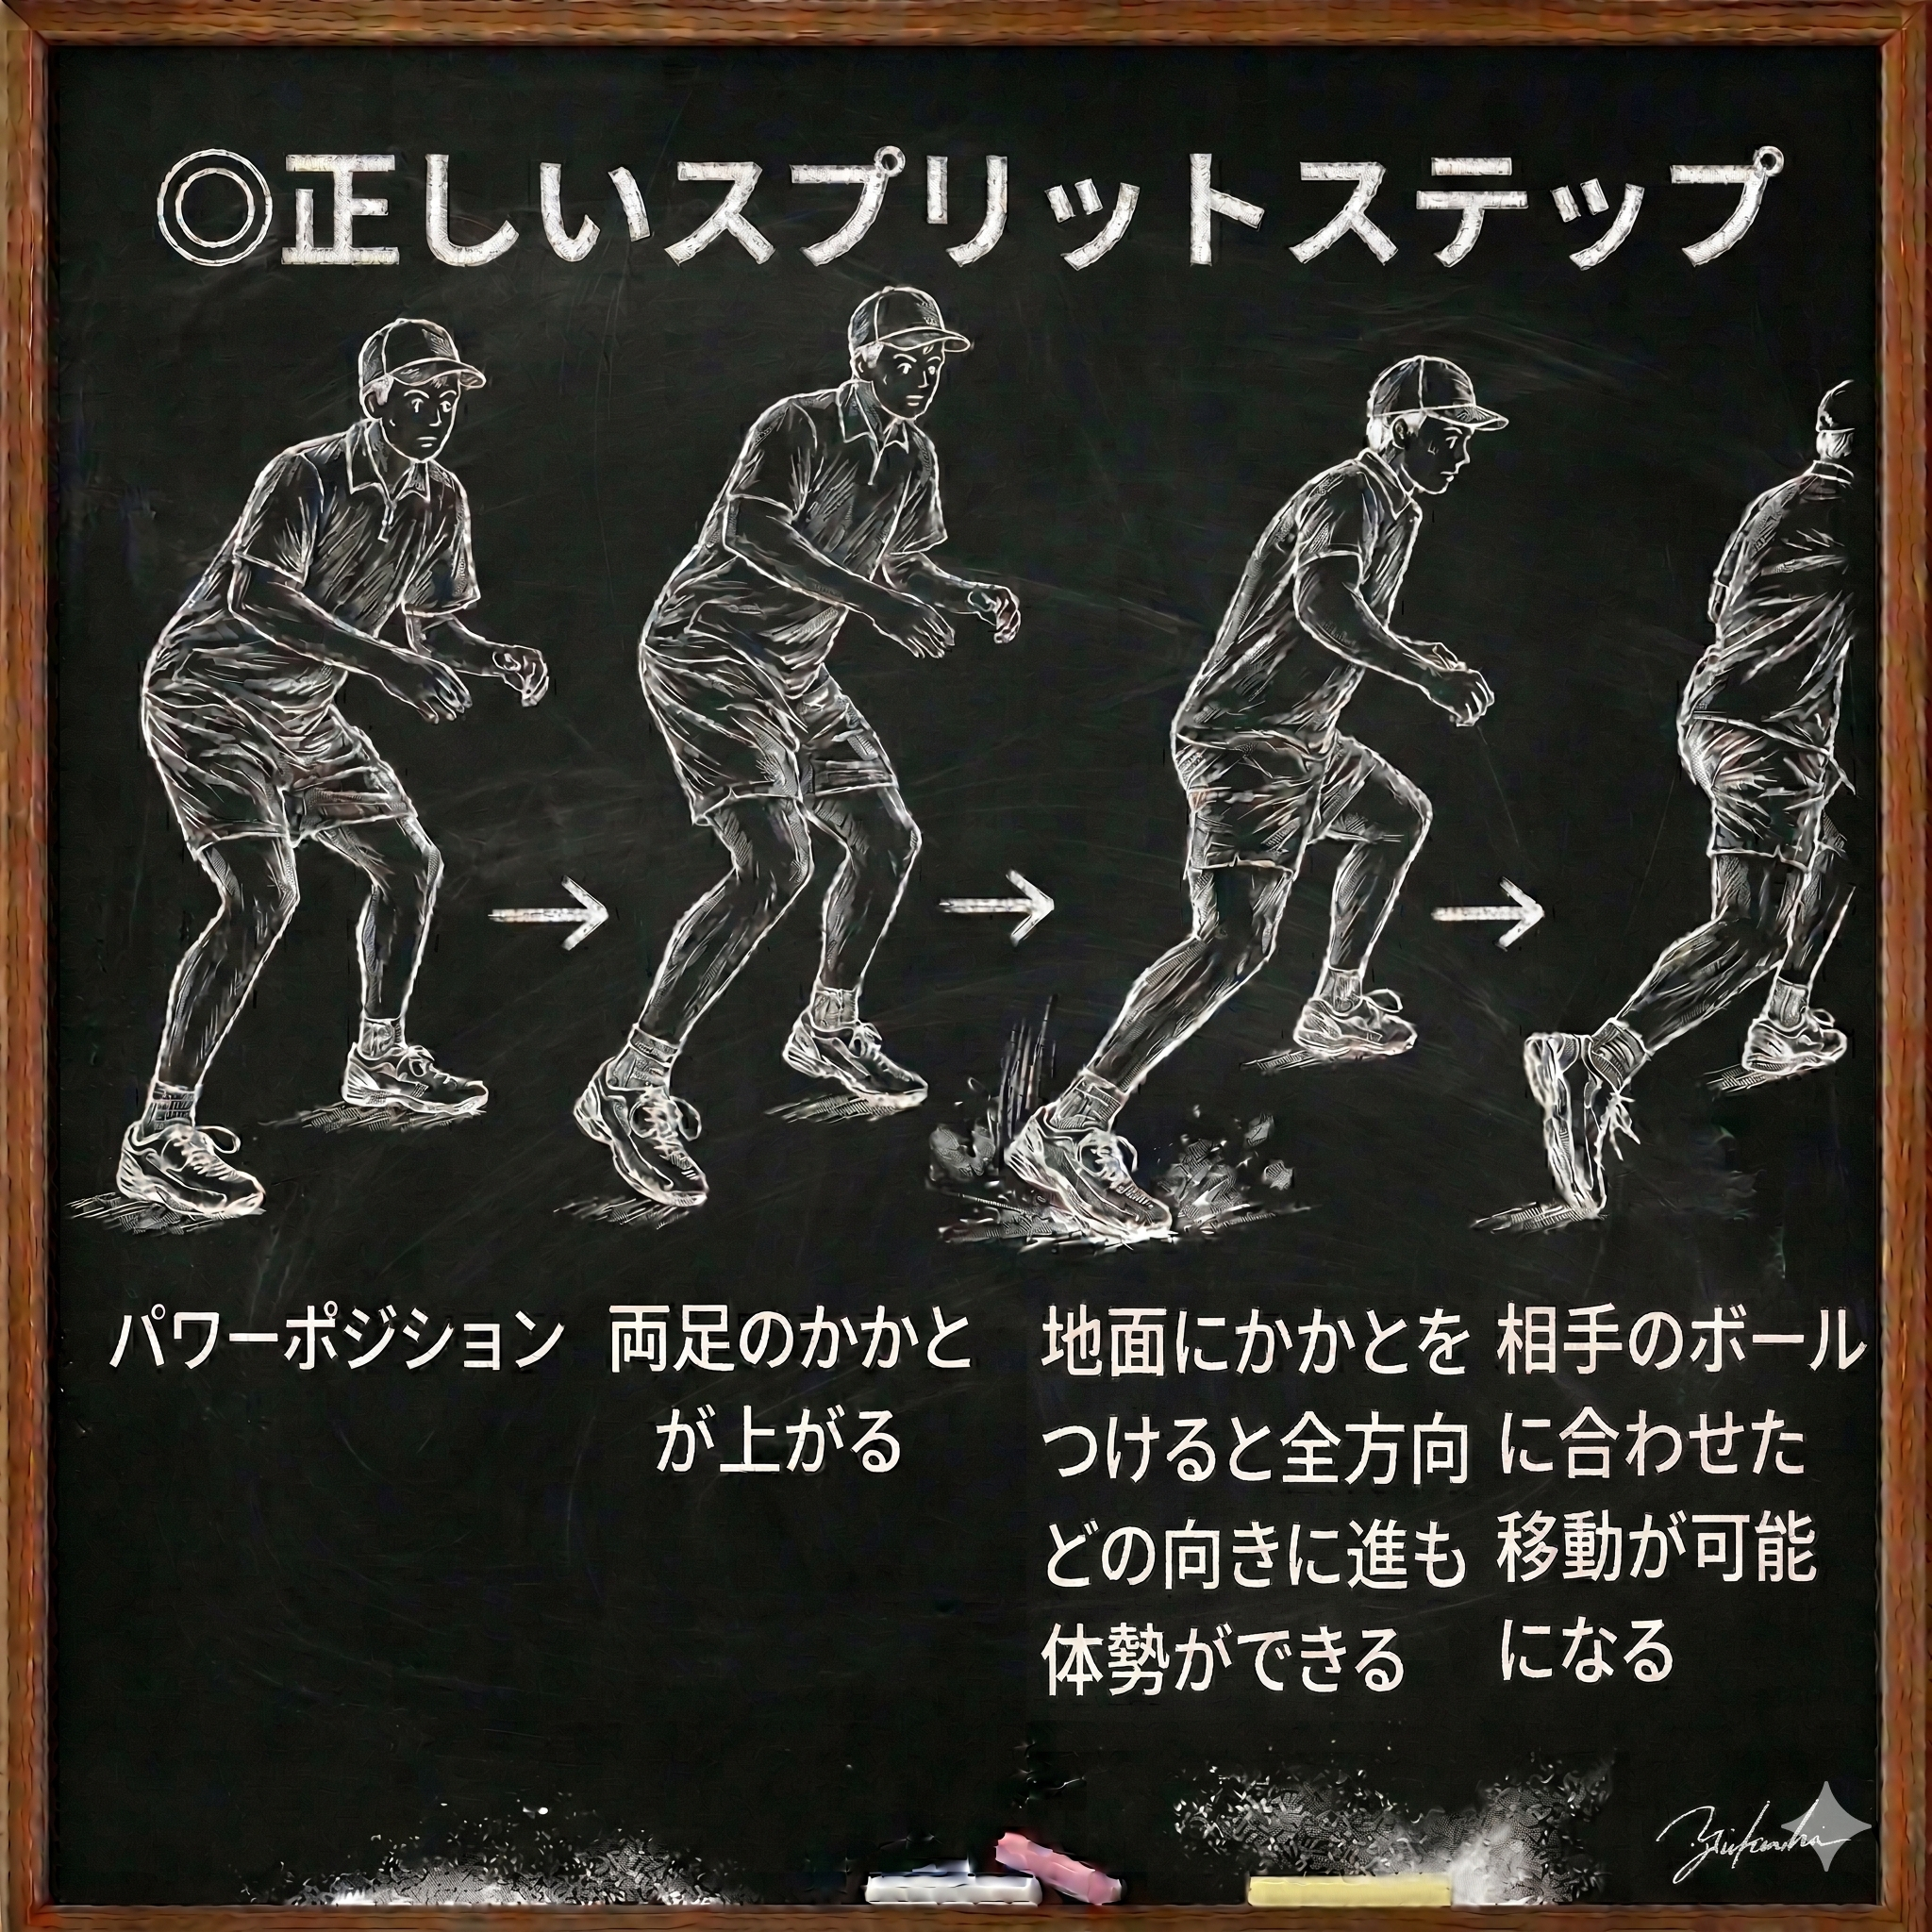 ◎正しいスプリットステップ
パワーポジション
両足のかかと
が上がる
地面にかかとを
つけると全方向
どの向きに進も
体勢ができる
相手のボール
に合わせた
移動が可能
になる